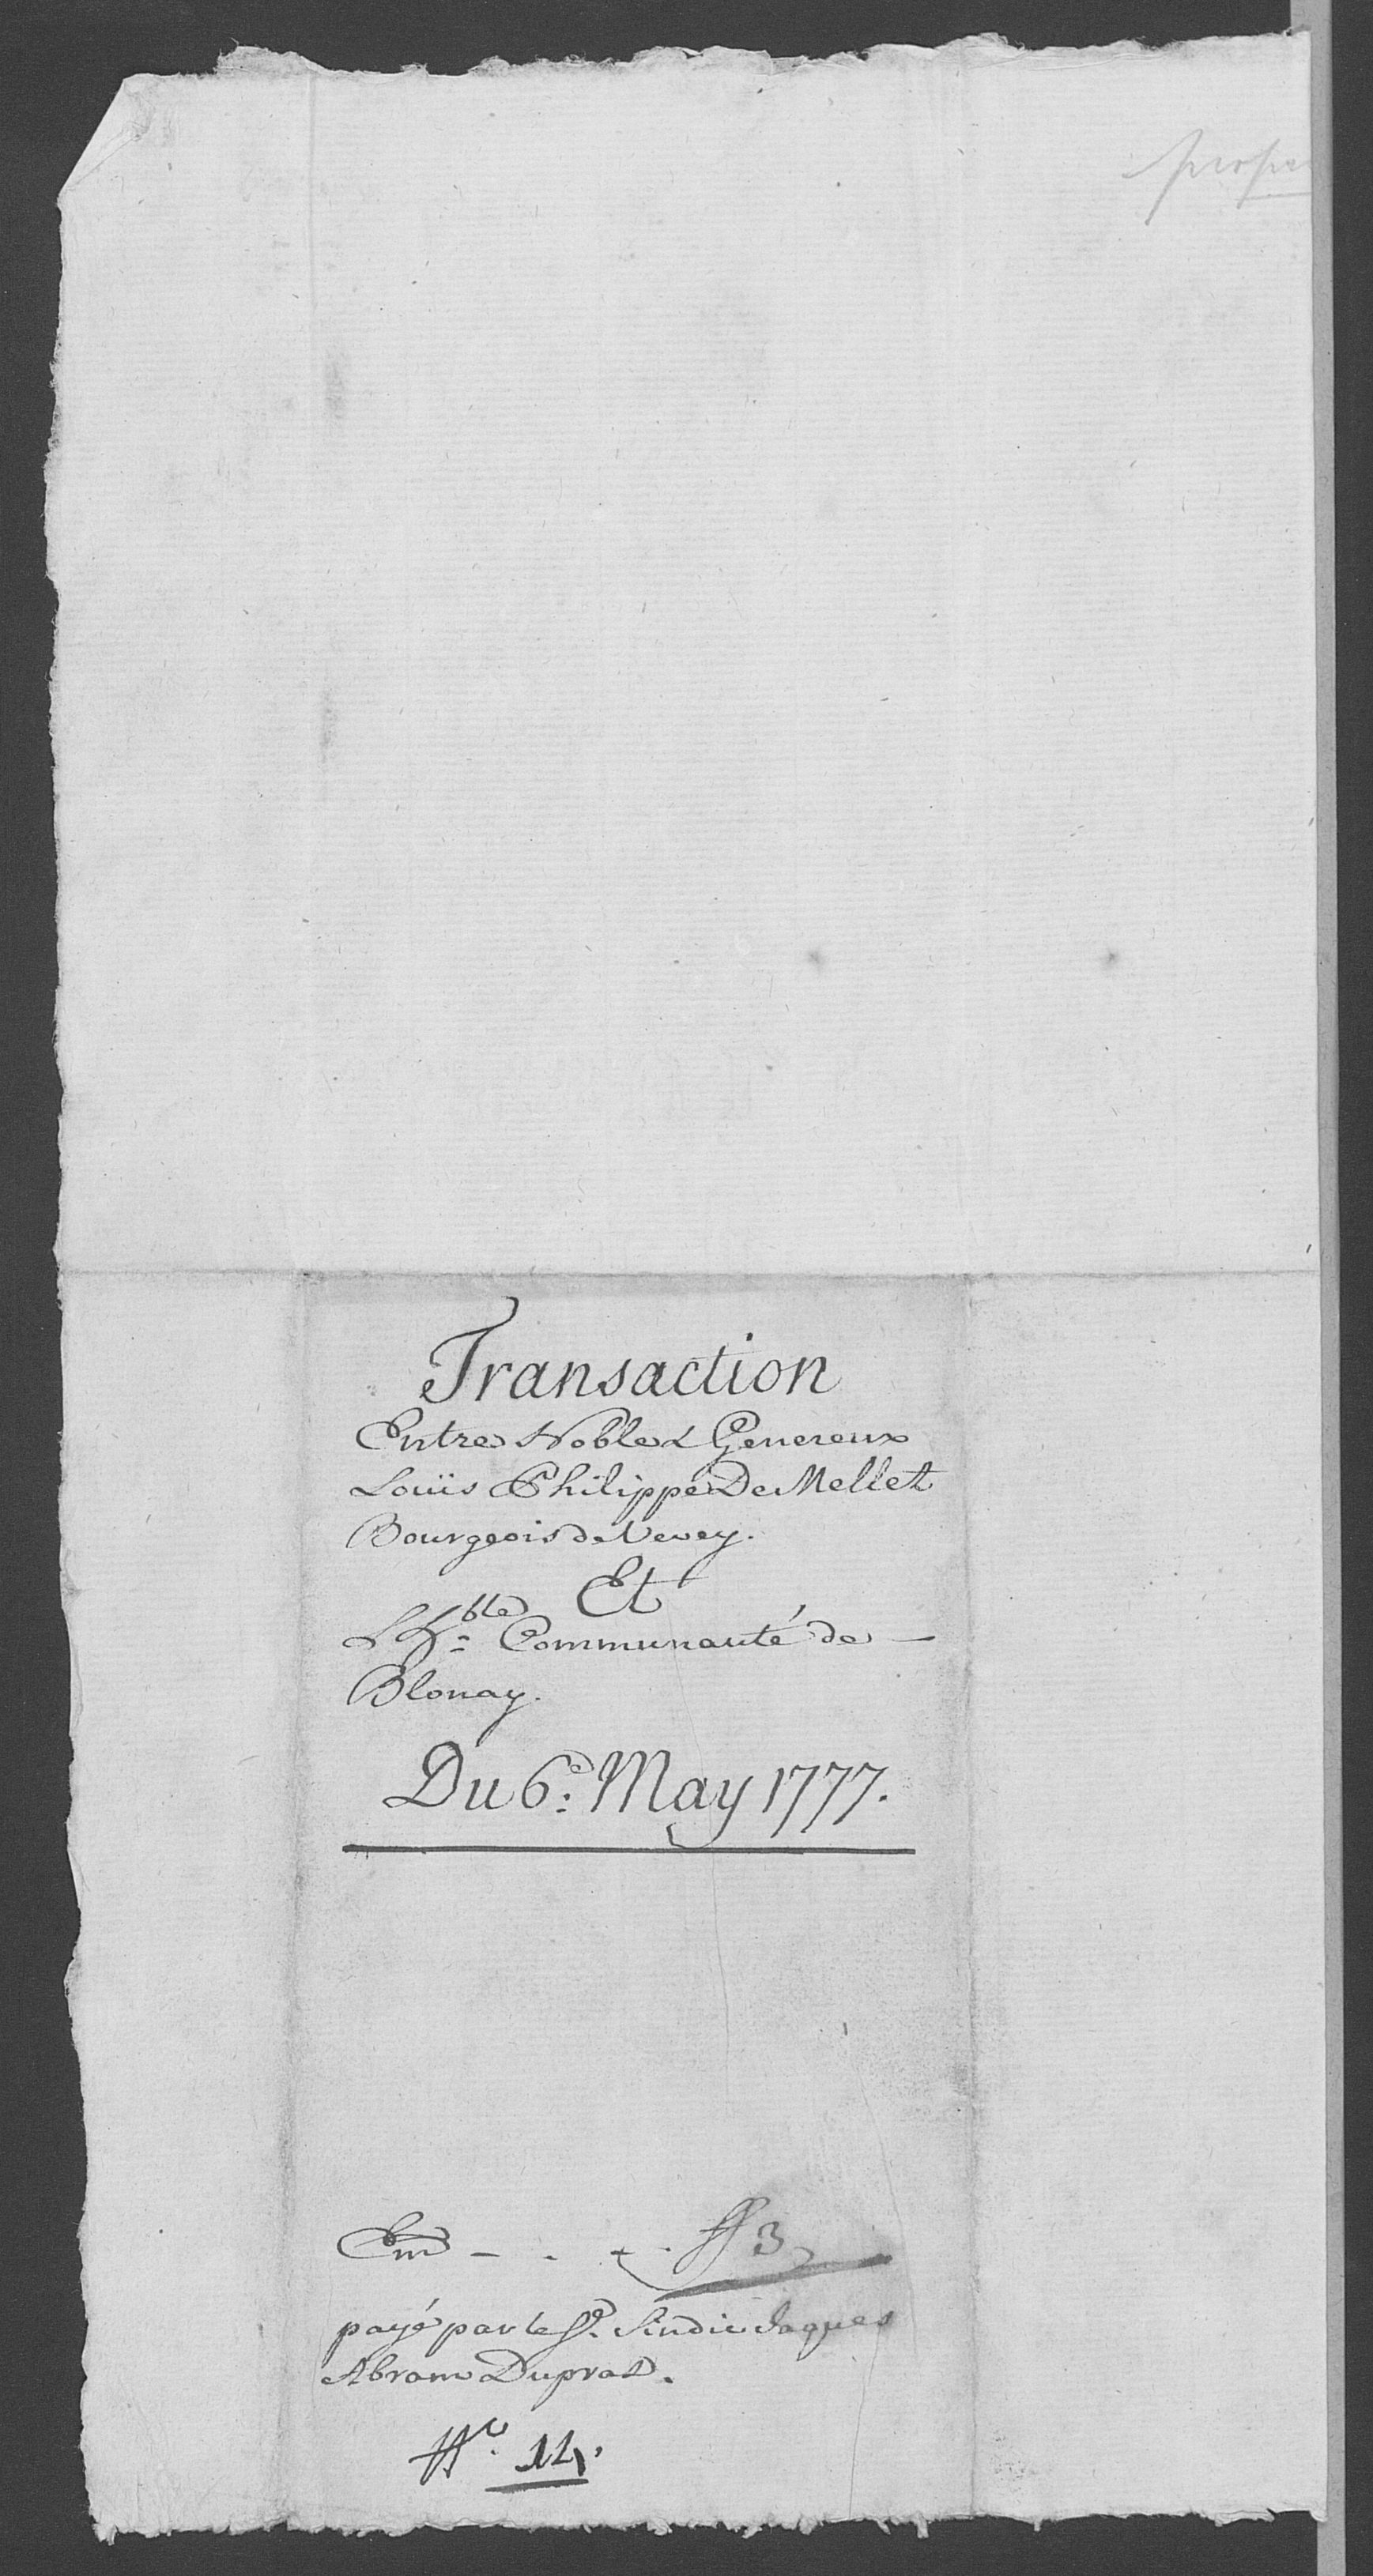 Transaction
Entre Noble & Genereux
Louïs Philippe De Mellet
Bourgeois de Vevey.
Et
L'h.ble Communauté de —
Blonay.
Du 6.e May 1777.
Em.
ff 3
payé par le Sr. Sindic Jaques
Abram Duprad.
No. 14.